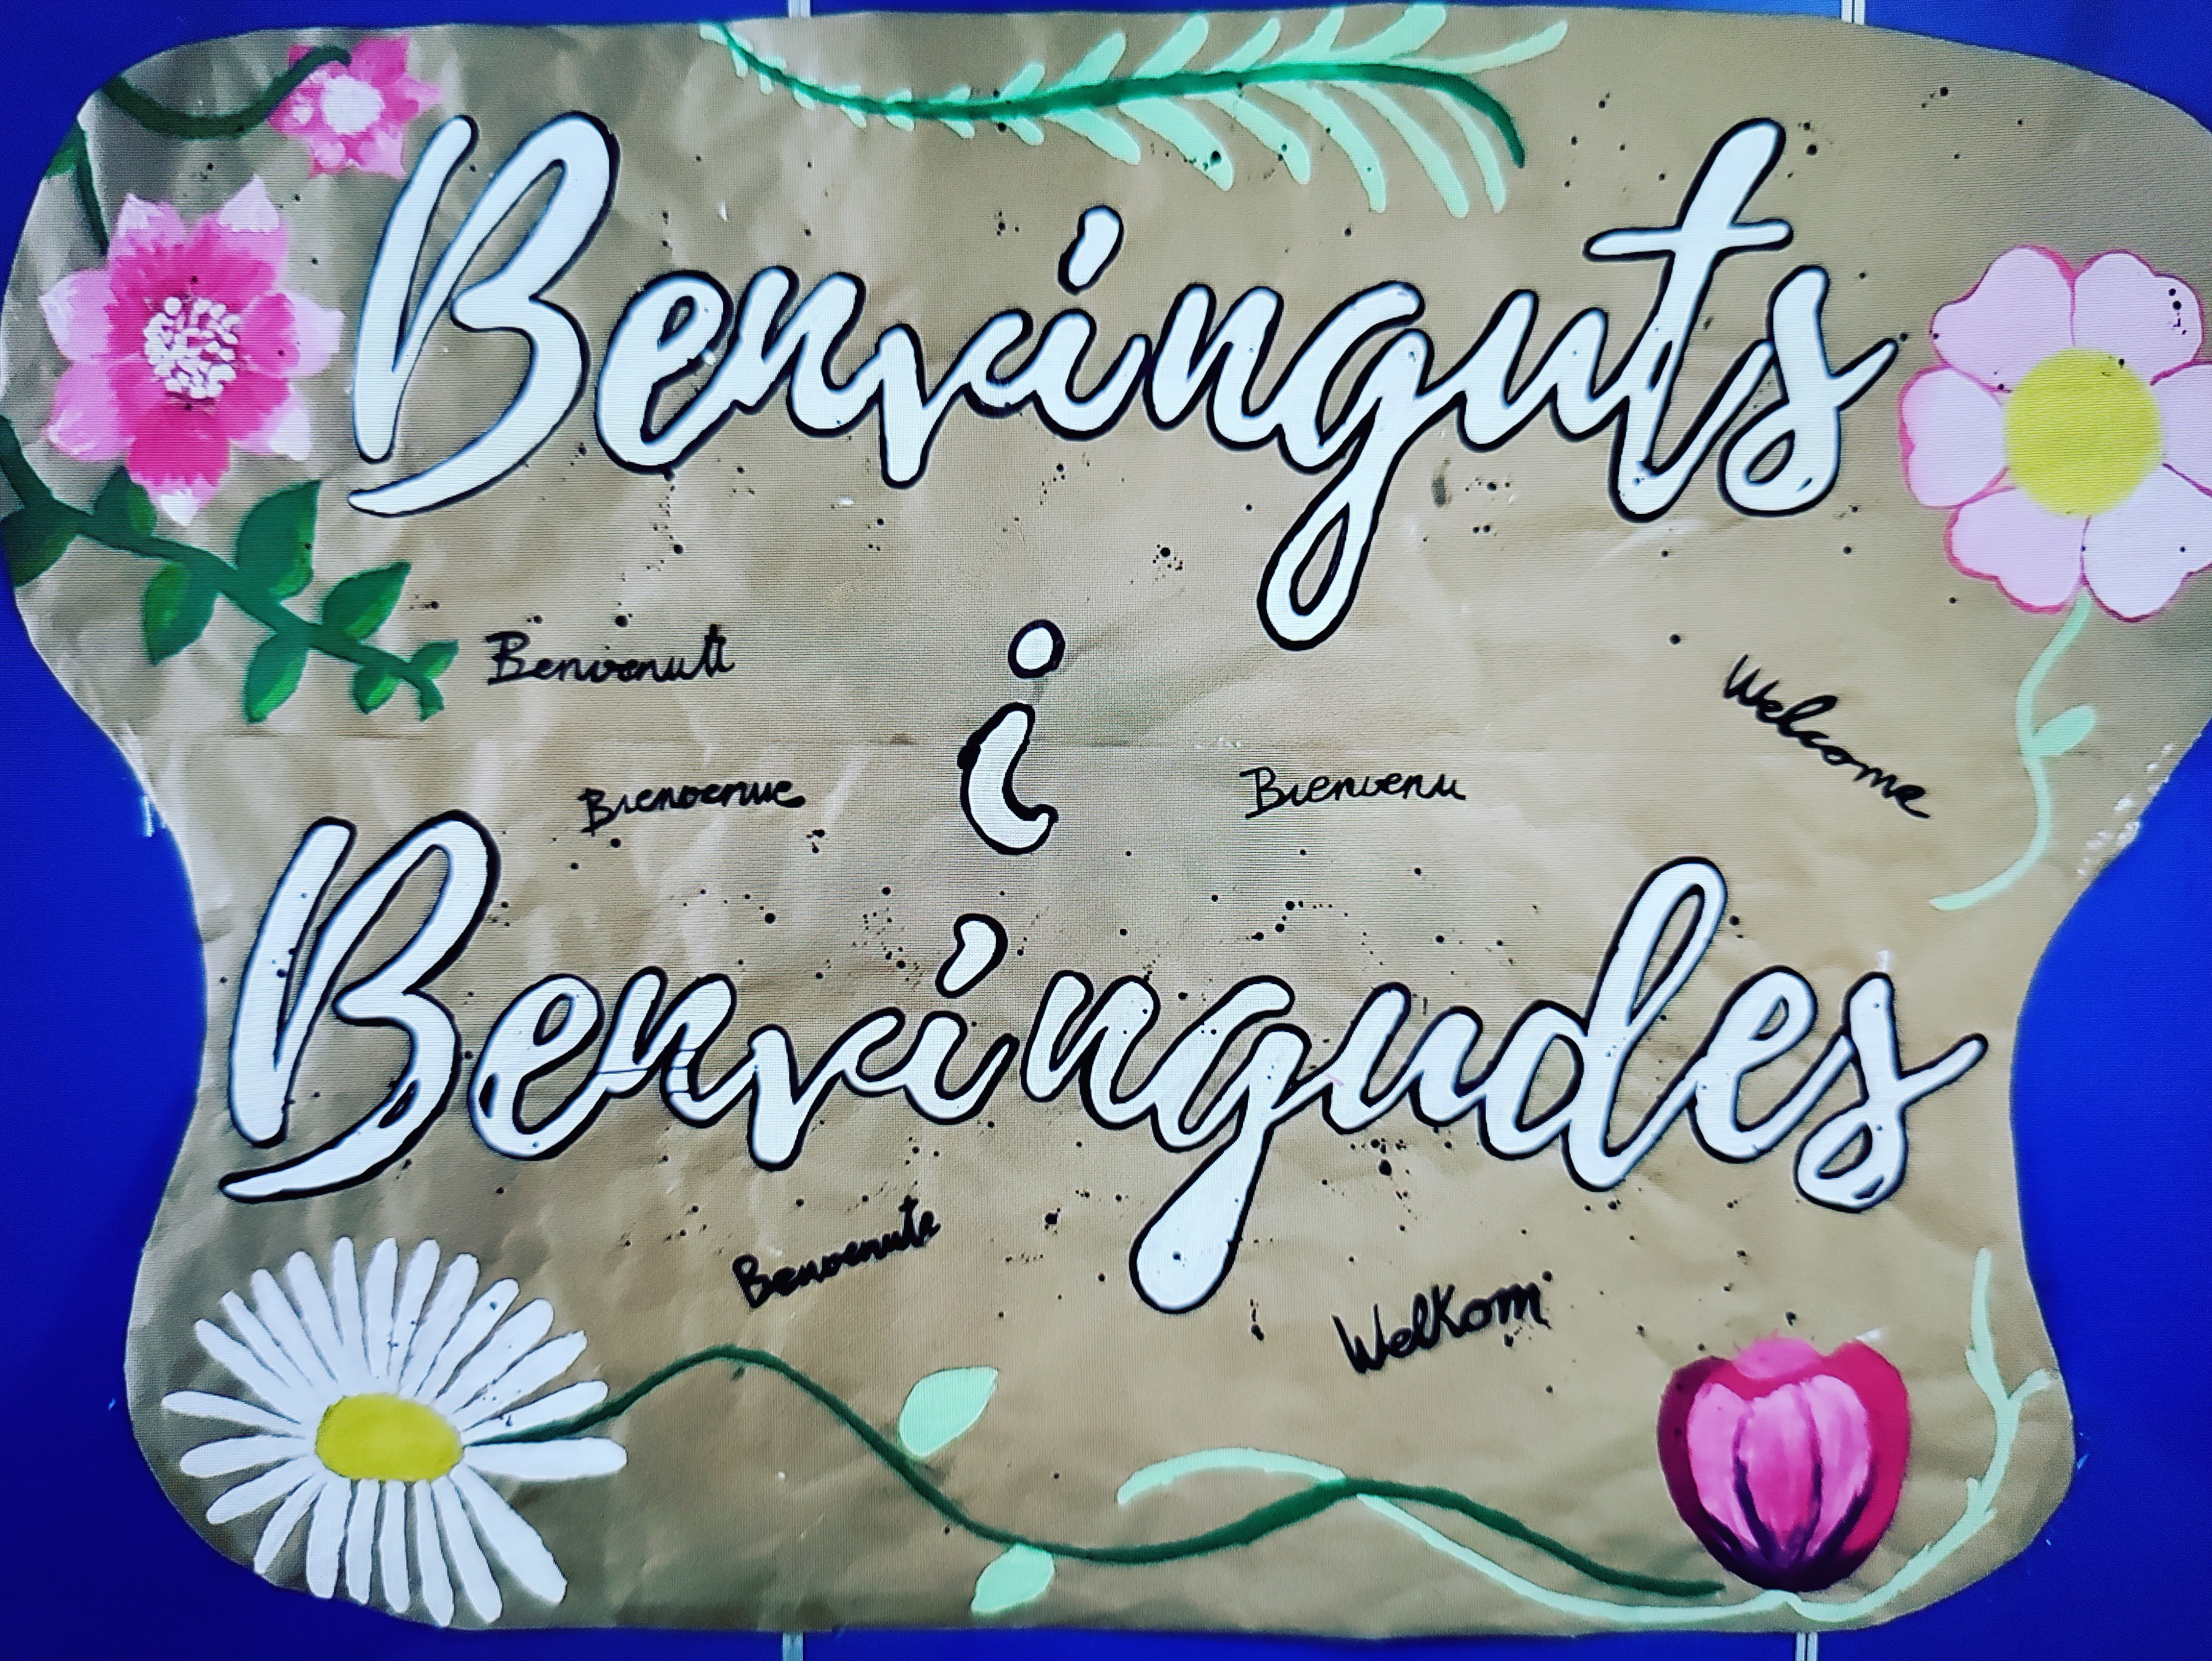 Benvinguts
Benvenuti
Welcome
i
Bienvenue
Bienvenu
Benvingudes
Benvenute
Welkom